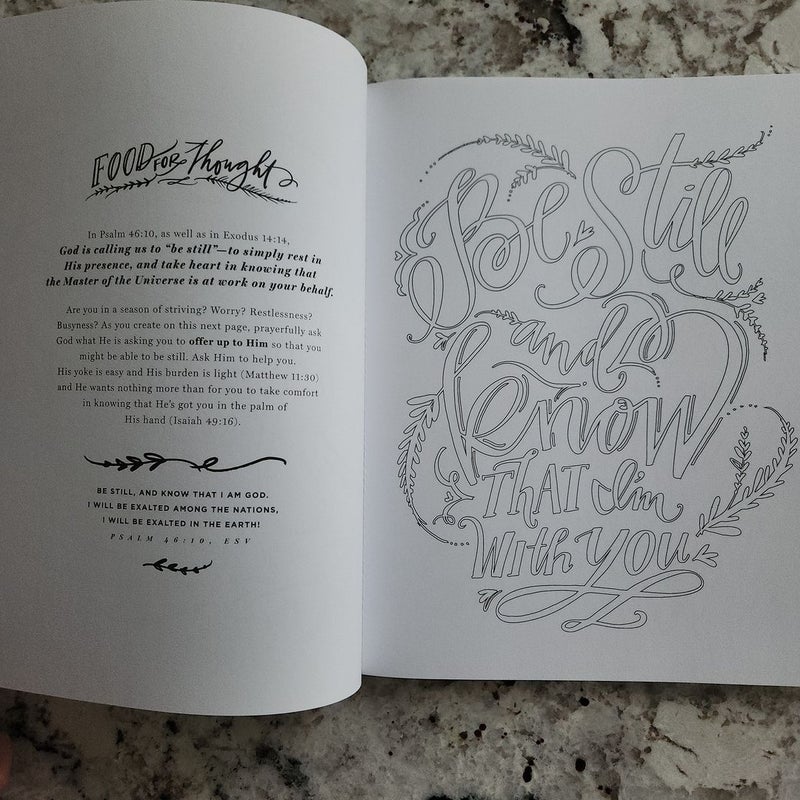 FOOD FOR Thought
In Psalm 46:10, as well as in Exodus 14:14,
God is calling us to "be still"—to simply rest in
His presence, and take heart in knowing that
the Master of the Universe is at work on your behalf.
Are you in a season of striving? Worry? Restlessness?
Busyness? As you create on this next page, prayerfully ask
God what He is asking you to offer up to Him so that you
might be able to be still. Ask Him to help you.
His yoke is easy and His burden is light (Matthew 11:30)
and He wants nothing more than for you to take comfort
in knowing that He's got you in the palm of
His hand (Isaiah 49:16).
BE STILL, AND KNOW THAT I AM GOD.
I WILL BE EXALTED AMONG THE NATIONS,
I WILL BE EXALTED IN THE EARTH!
PSALM 46:10, ESV
Be Still
and
Know
THAT I'm
With YOU